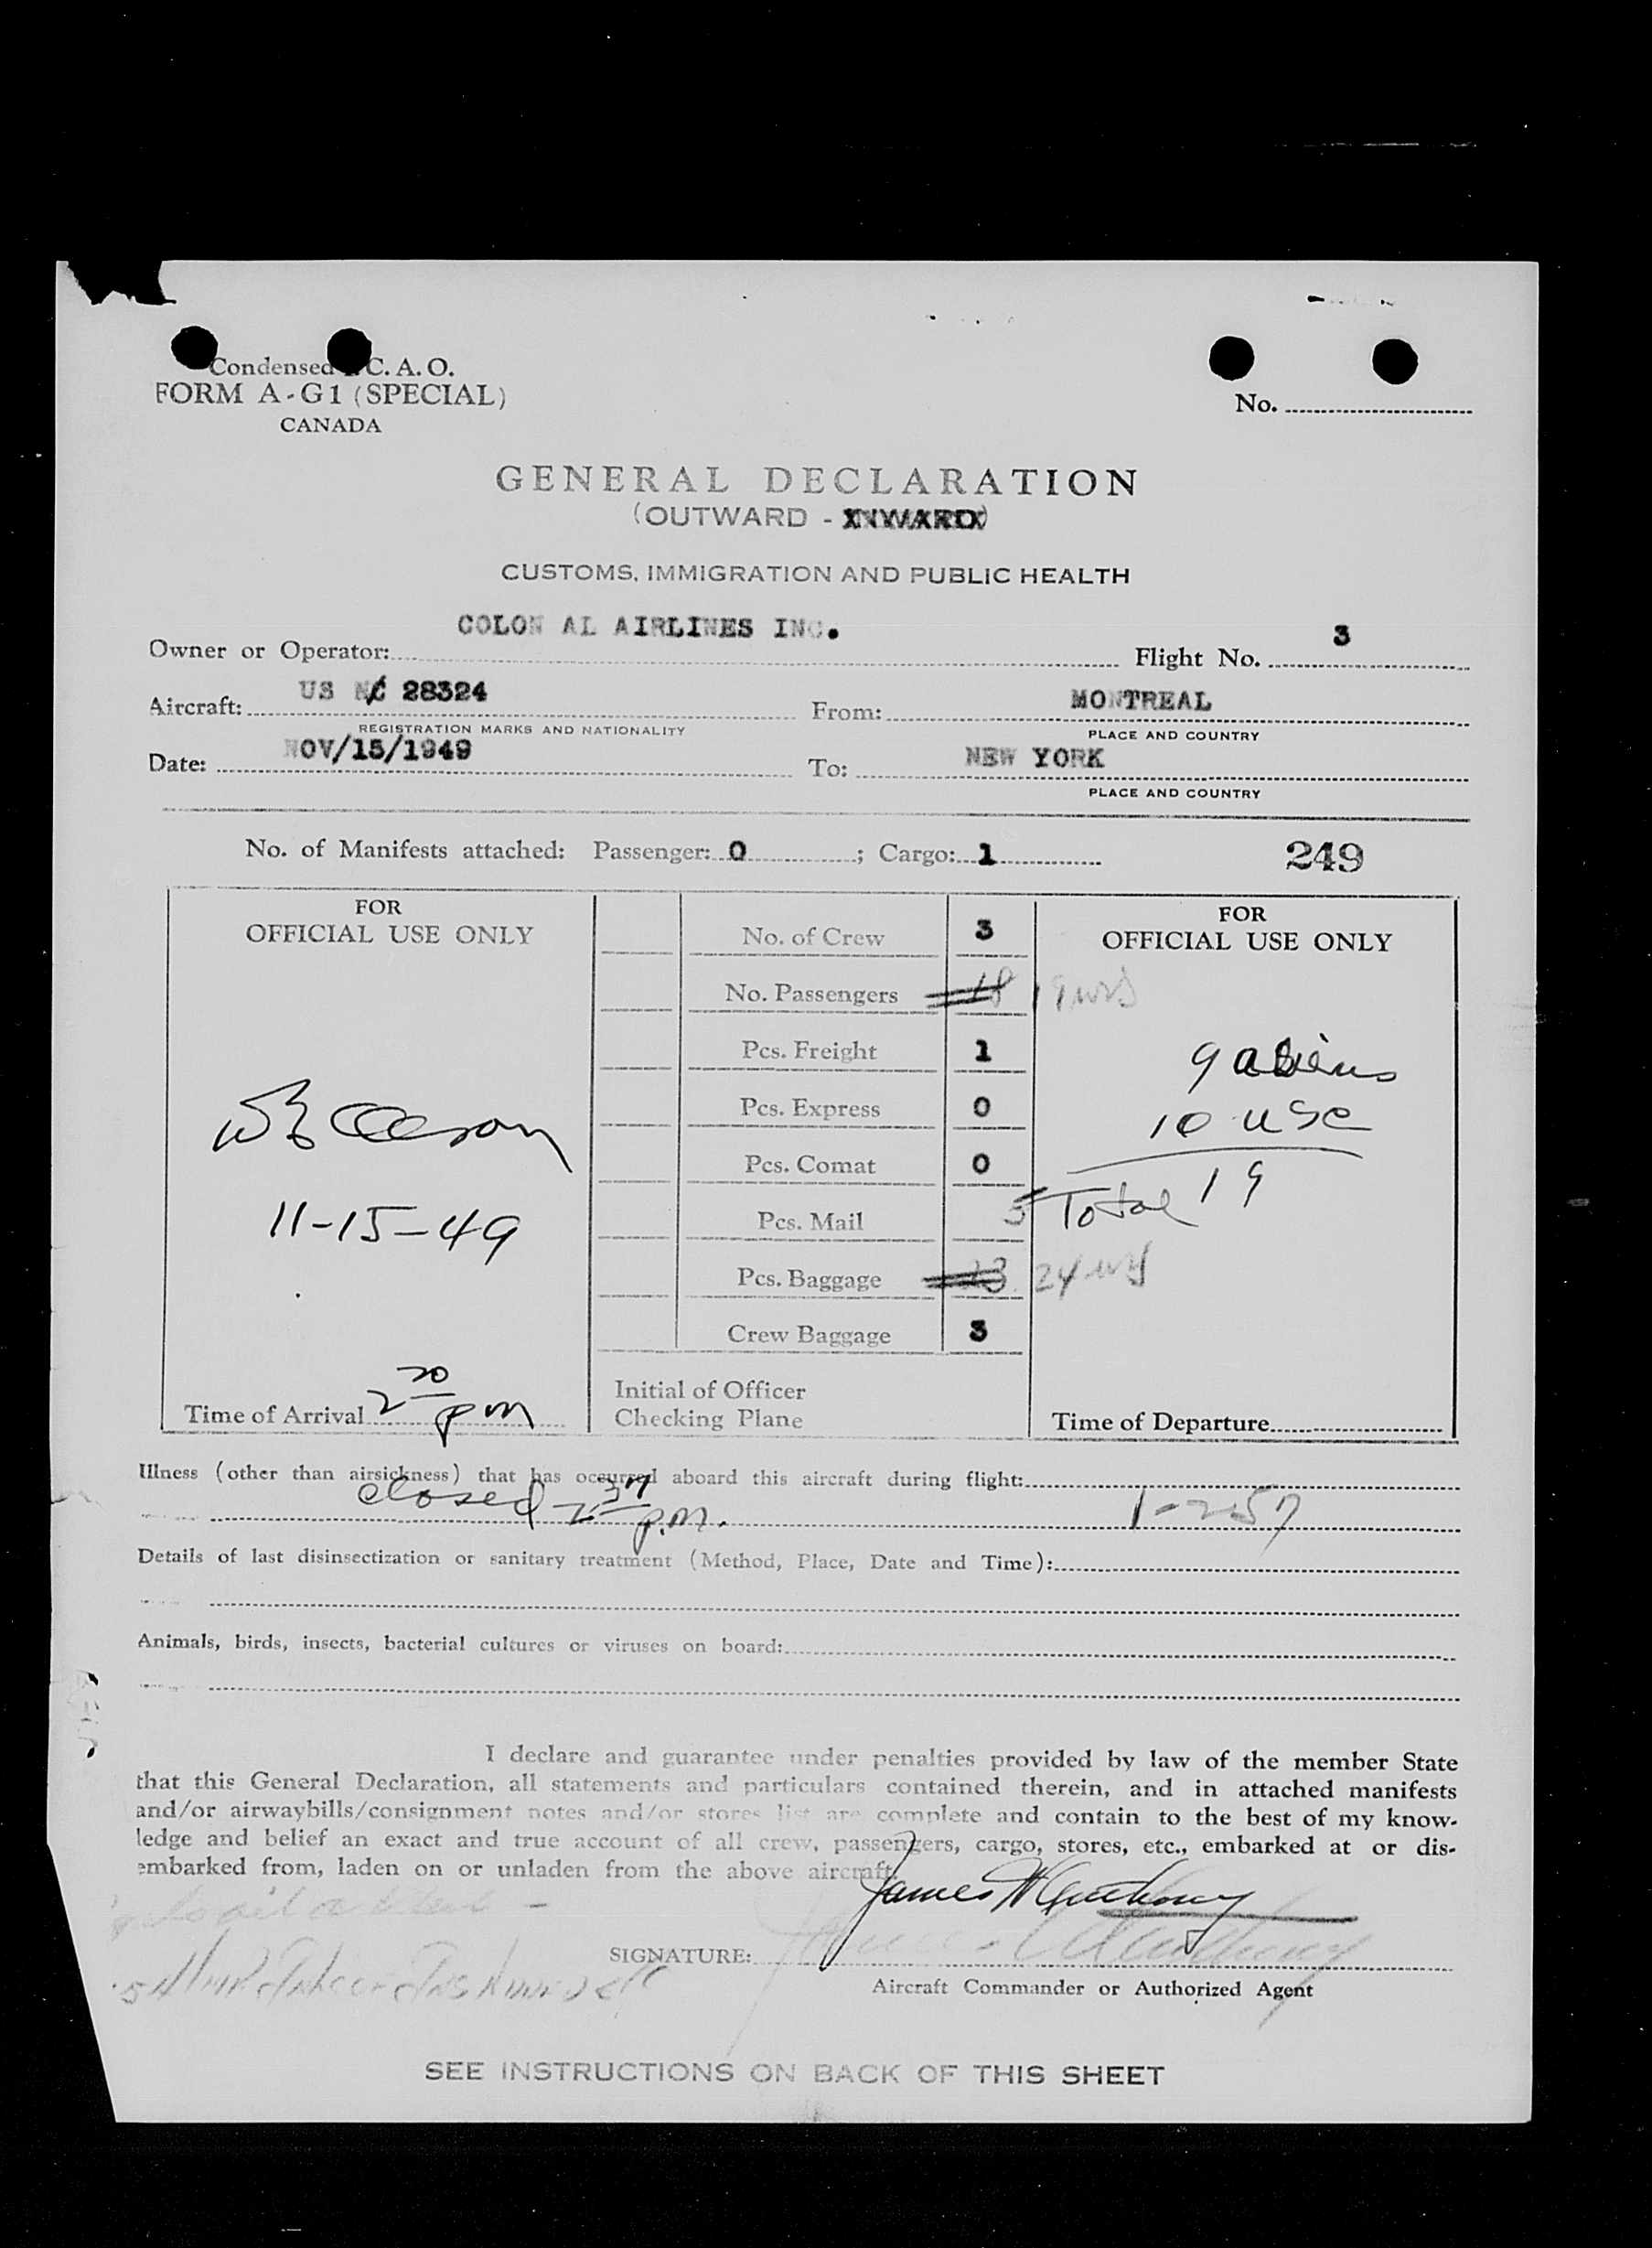 Condensed I. C. A. O.
FORM A-G1 (SPECIAL)
CANADA
No.
GENERAL DECLARATION
(OUTWARD - INWARD)
CUSTOMS, IMMIGRATION AND PUBLIC HEALTH
Owner or Operator: COLON AL AIRLINES INC. Flight No. 3
Aircraft: US NC 28324 From: MONTREAL
REGISTRATION MARKS AND NATIONALITY PLACE AND COUNTRY
Date: NOV/15/1949 To: NEW YORK
PLACE AND COUNTRY
No. of Manifests attached: Passenger: 0 ; Cargo: 1 249
FOR
OFFICIAL USE ONLY
11-15-49
Time of Arrival 2 20 pm
No. of Crew 3
No. Passengers 18 19
Pcs. Freight 1
Pcs. Express 0
Pcs. Comat 0
Pcs. Mail 5
Pcs. Baggage 23 24
Crew Baggage 3
Initial of Officer
Checking Plane
FOR
OFFICIAL USE ONLY
9 aliens
10 usc
Total 19
Time of Departure
Illness (other than airsickness) that has occurred aboard this aircraft during flight:
closed 2 37 p.m. 1-257
Details of last disinsectization or sanitary treatment (Method, Place, Date and Time):
Animals, birds, insects, bacterial cultures or viruses on board:
I declare and guarantee under penalties provided by law of the member State
that this General Declaration, all statements and particulars contained therein, and in attached manifests
and/or airwaybills/consignment notes and/or stores list are complete and contain to the best of my know-
ledge and belief an exact and true account of all crew, passengers, cargo, stores, etc., embarked at or dis-
embarked from, laden on or unladen from the above aircraft.
James H Anthony
SIGNATURE:
Aircraft Commander or Authorized Agent
SEE INSTRUCTIONS ON BACK OF THIS SHEET